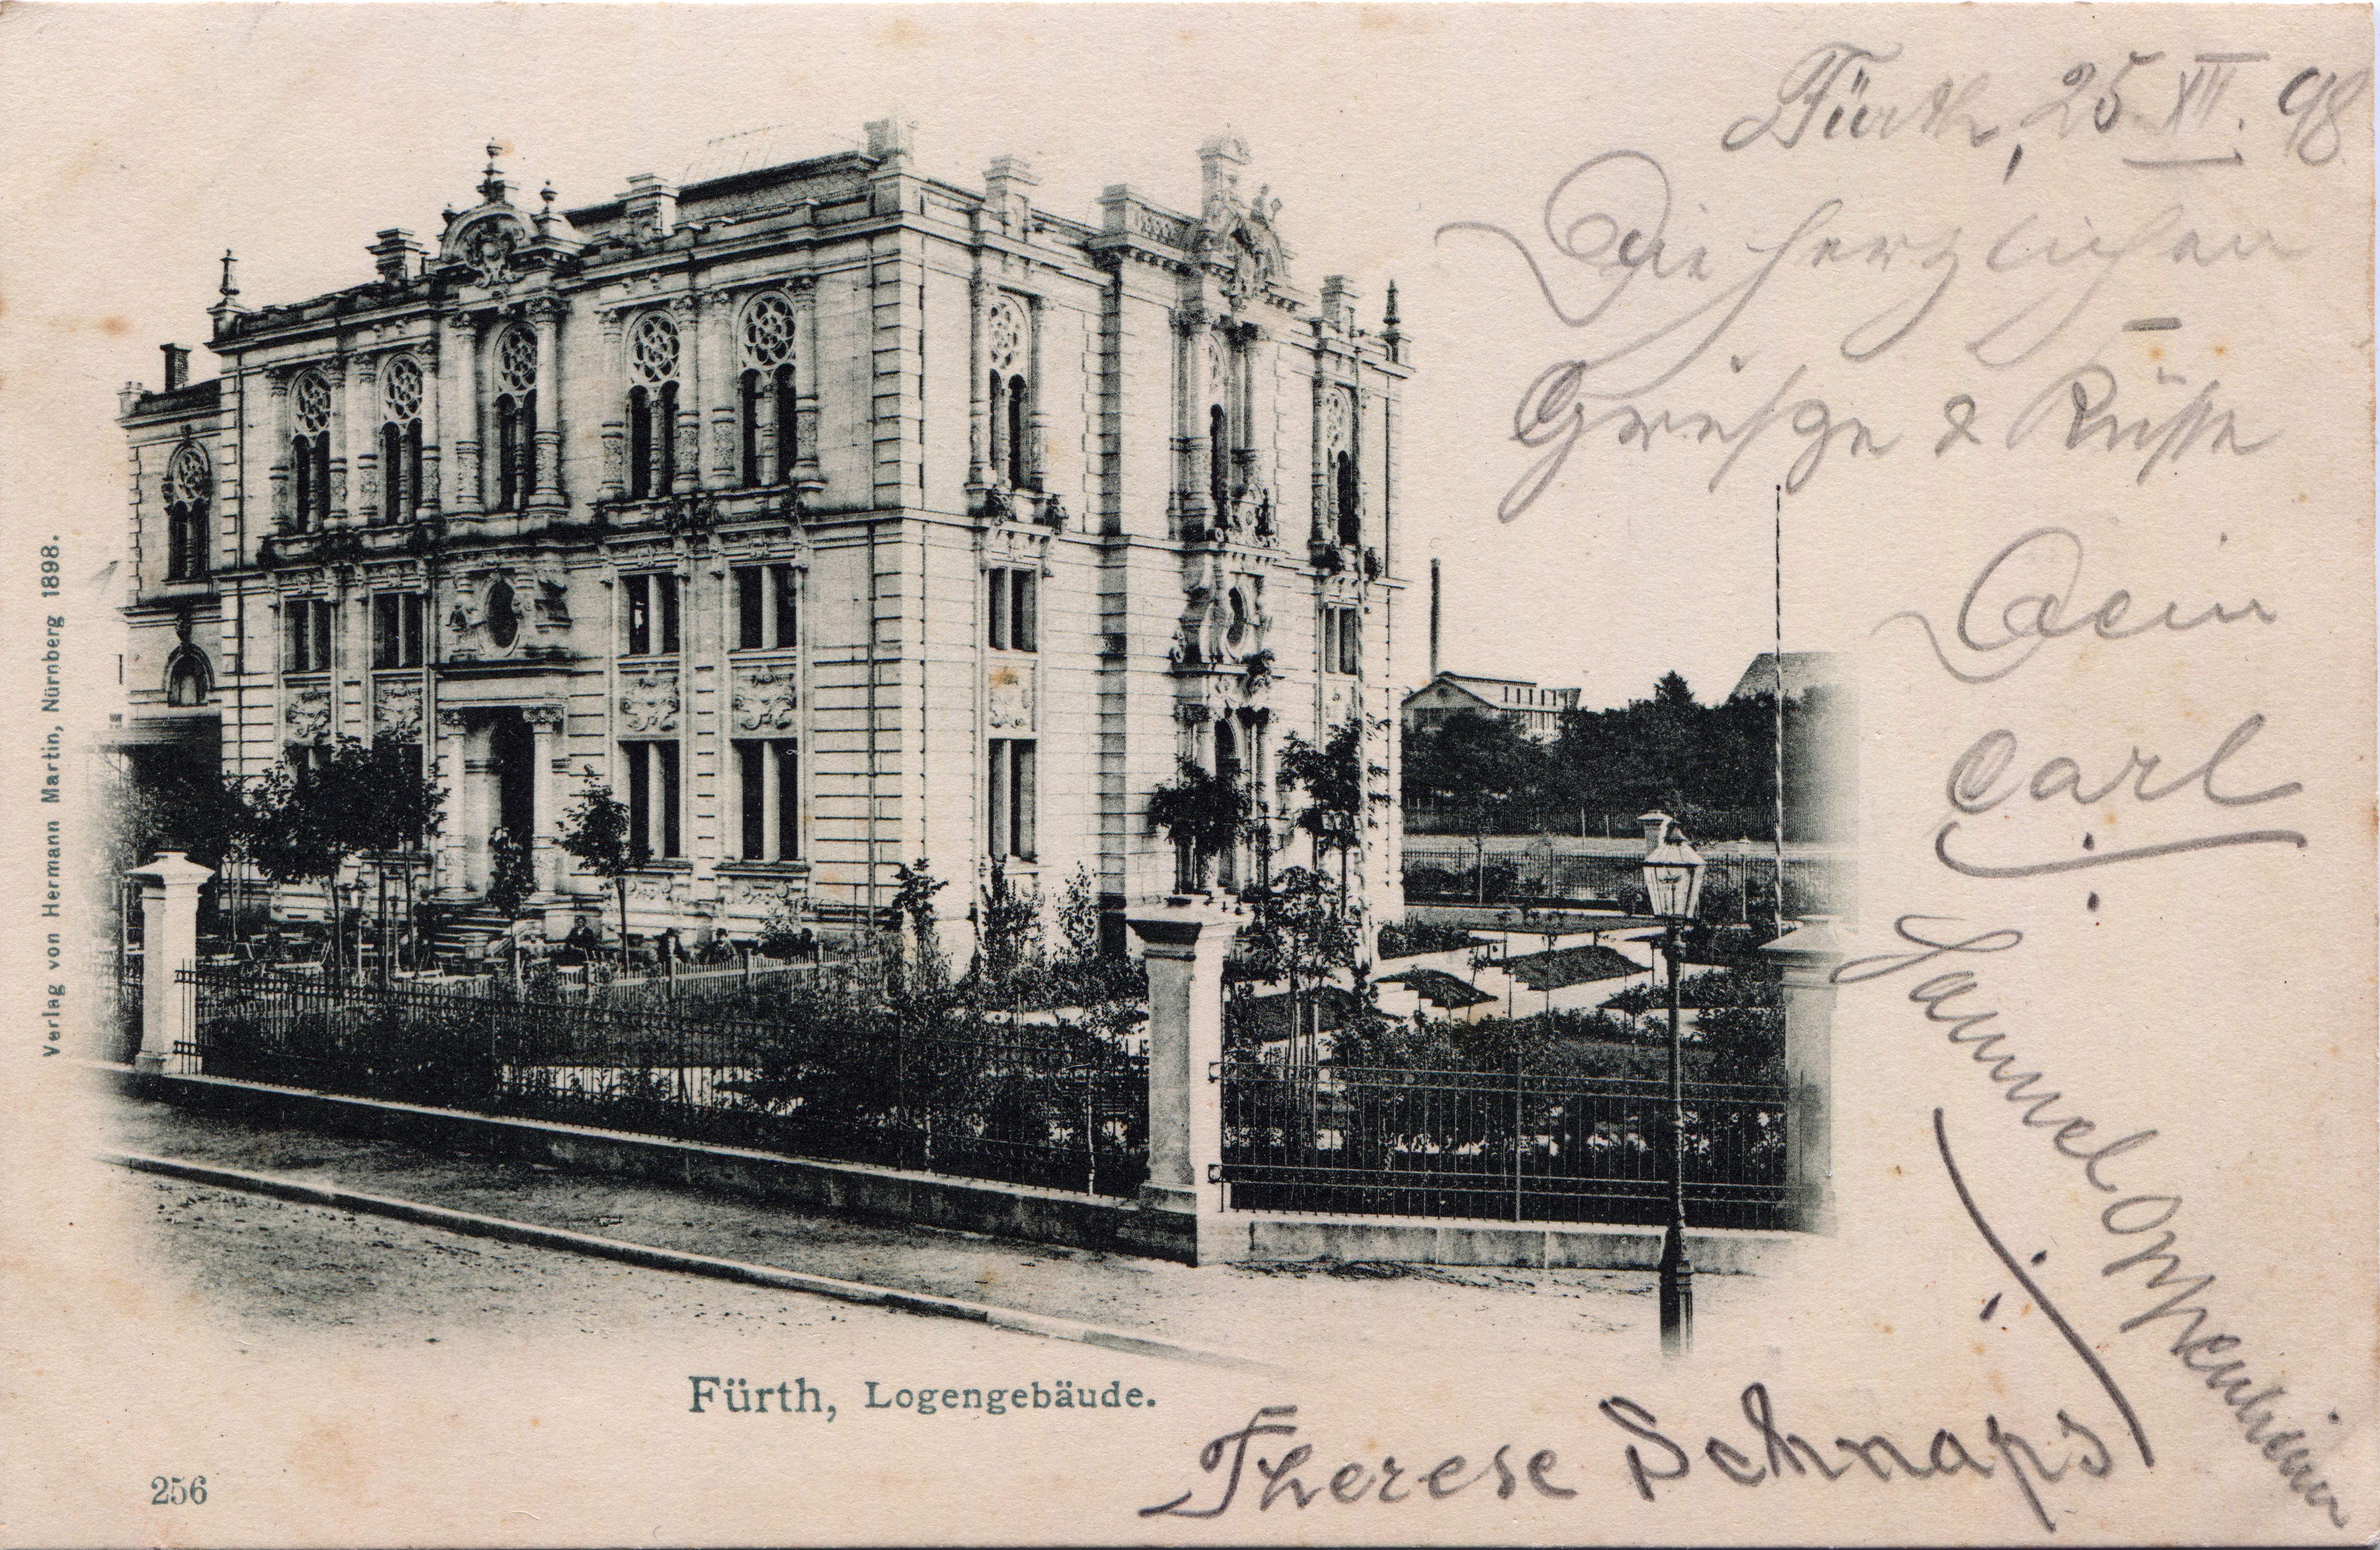 Fürth, 25 XII. 98
Die herzlichen
Grüsze & Küsse
Dein
Carl
Samuel Oppenheim
Therese Schnaps
Verlag von Hermann Martin, Nürnberg 1898.
Fürth, Logengebäude.
256